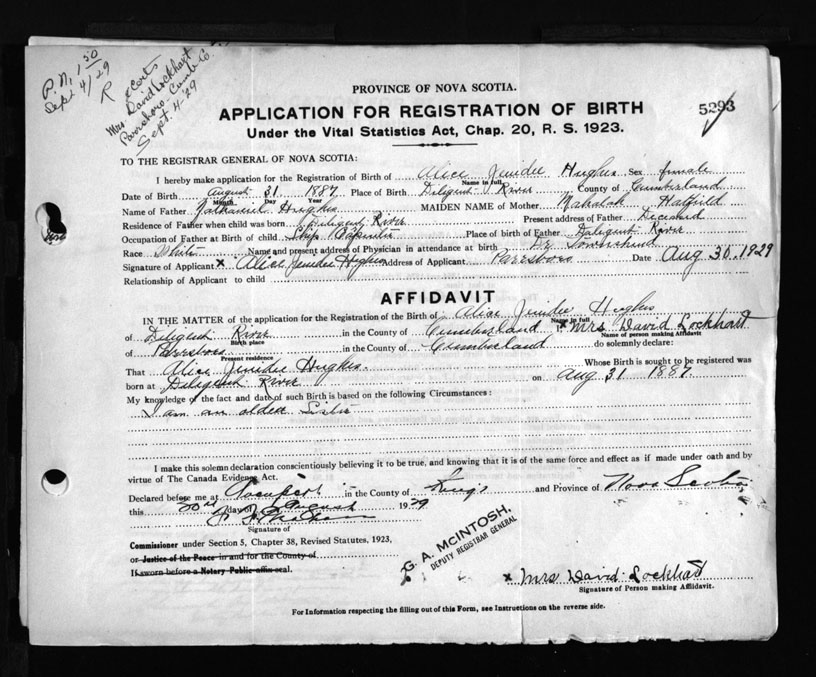 P.N. 1 30
Sept 4/29
R
2 Certs
Mrs. David Lockhart
Parrsboro, Cumb. Co.
Sept. 4-29
PROVINCE OF NOVA SCOTIA.
5293
APPLICATION FOR REGISTRATION OF BIRTH
Under the Vital Statistics Act, Chap. 20, R. S. 1923.
TO THE REGISTRAR GENERAL OF NOVA SCOTIA:
I hereby make application for the Registration of Birth of Alice Jenidee Hughes Sex female
Name in full
Date of Birth August 31 1887 Place of Birth Diligent River County of Cumberland
Month Day Year
Name of Father Nathaniel Hughes MAIDEN NAME of Mother Mahalah Hatfield
Residence of Father when child was born Diligent River Present address of Father Deceased
Occupation of Father at Birth of child Ship Carpenter Place of birth of Father Diligent River
Race White Name and present address of Physician in attendance at birth Dr Townshend
Signature of Applicant x Alice Jenidee Hughes Address of Applicant Parrsboro Date Aug 30. 1929
Relationship of Applicant to child
AFFIDAVIT
IN THE MATTER of the application for the Registration of the Birth of Alice Jenidee Hughes
Name in full
of Diligent River in the County of Cumberland I, x Mrs David Lockhart
Birth place Name of person making Affidavit
of Parrsboro in the County of Cumberland do solemnly declare:
Present residence
That Alice Jenidee Hughes Whose Birth is sought to be registered was
born at Diligent River on Aug 31 1887.
My knowledge of the fact and date of such Birth is based on the following Circumstances:
I am an older Sister
I make this solemn declaration conscientiously believing it to be true, and knowing that it is of the same force and effect as if made under oath and by
virtue of The Canada Evidence Act.
Declared before me at in the County of Kings and Province of Nova Scotia
this 30th day of August 1929
Signature of
Commissioner under Section 5, Chapter 38, Revised Statutes, 1923,
or Justice of the Peace in and for the County of
If sworn before a Notary Public affix seal.
G. A. McINTOSH,
DEPUTY REGISTRAR GENERAL
x Mrs David Lockhart
Signature of Person making Affidavit.
For Information respecting the filling out of this Form, see Instructions on the reverse side.